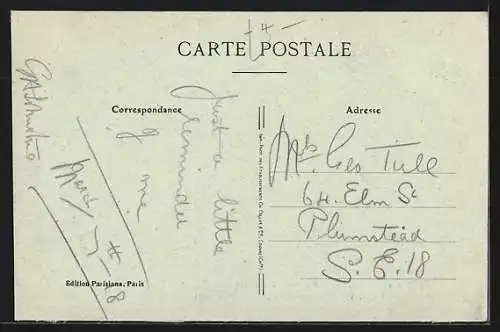 CARTE POSTALE
Correspondance
Adresse
Just a little
reminder
of me
March 7th - 8
Mrs. Geo Tull
64. Elm St
Plumstead
S.E. 18
Edition Parisiana, Paris